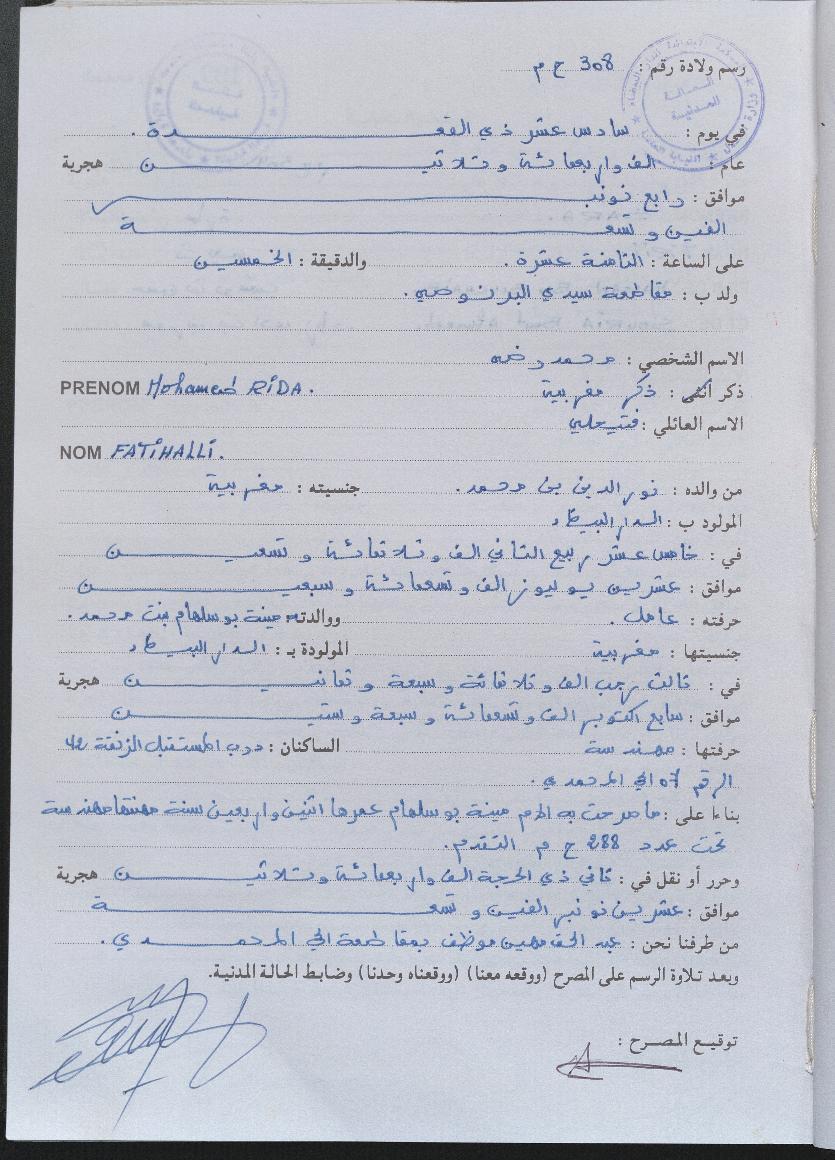 رسم ولادة رقم : 308 ح م
في يوم : سادس عشر ذي القعدة .
عام : الف واربعمائة وثلاثين هجرية
موافق : رابع نونبر
الفين و تسعة
على الساعة : الثامنة عشرة . والدقيقة : الخمسين
ولد ب : مقاطعة سيدي البرنوصي .
الاسم الشخصي : محمد رضى
ذكر أنثى : ذكر مغربية PRENOM Mohamed RiDA .
الاسم العائلي : فتيحلي
NOM FATiHALLi .
من والده : نور الدين بن محمد . جنسيته : مغربية
المولود ب : الدار البيضاء
في : خامس عشر ربيع الثاني الف وثلاثمائة و تسعين
موافق : عشرين يوليوز الف و تسعمائة و سبعين
حرفته : عامل . ووالدته مينة بوسلهام بنت محمد .
جنسيتها : مغربية المولودة بـ : الدار البيضاء
في : ثالث رجب الف وثلاثمائة و سبعة و ثمانين هجرية
موافق : سابع اكتوبر الف و تسعمائة و سبعة و ستين
حرفتها : مهندسة الساكنان : درب المستقبل الزنقة 42
الرقم 07 الحي المحمدي .
بناءا على : ما صرحت به الام مينة بوسلهام عمرها اثنين واربعين سنة مهنتها مهندسة
تحت عدد 288 ح م التقدم .
وحرر أو نقل في : ثاني ذي الحجة الف واربعمائة وثلاثين هجرية
موافق : عشرين نونبر الفين و تسعة
من طرفنا نحن : عبد الحق مهين موظف بمقاطعة الحي المحمدي .
وبعد تلاوة الرسم على المصرح (ووقعه معنا) (ووقعناه وحدنا) وضابط الحالة المدنية.
توقيع المصرح :
الحالة
المدنية